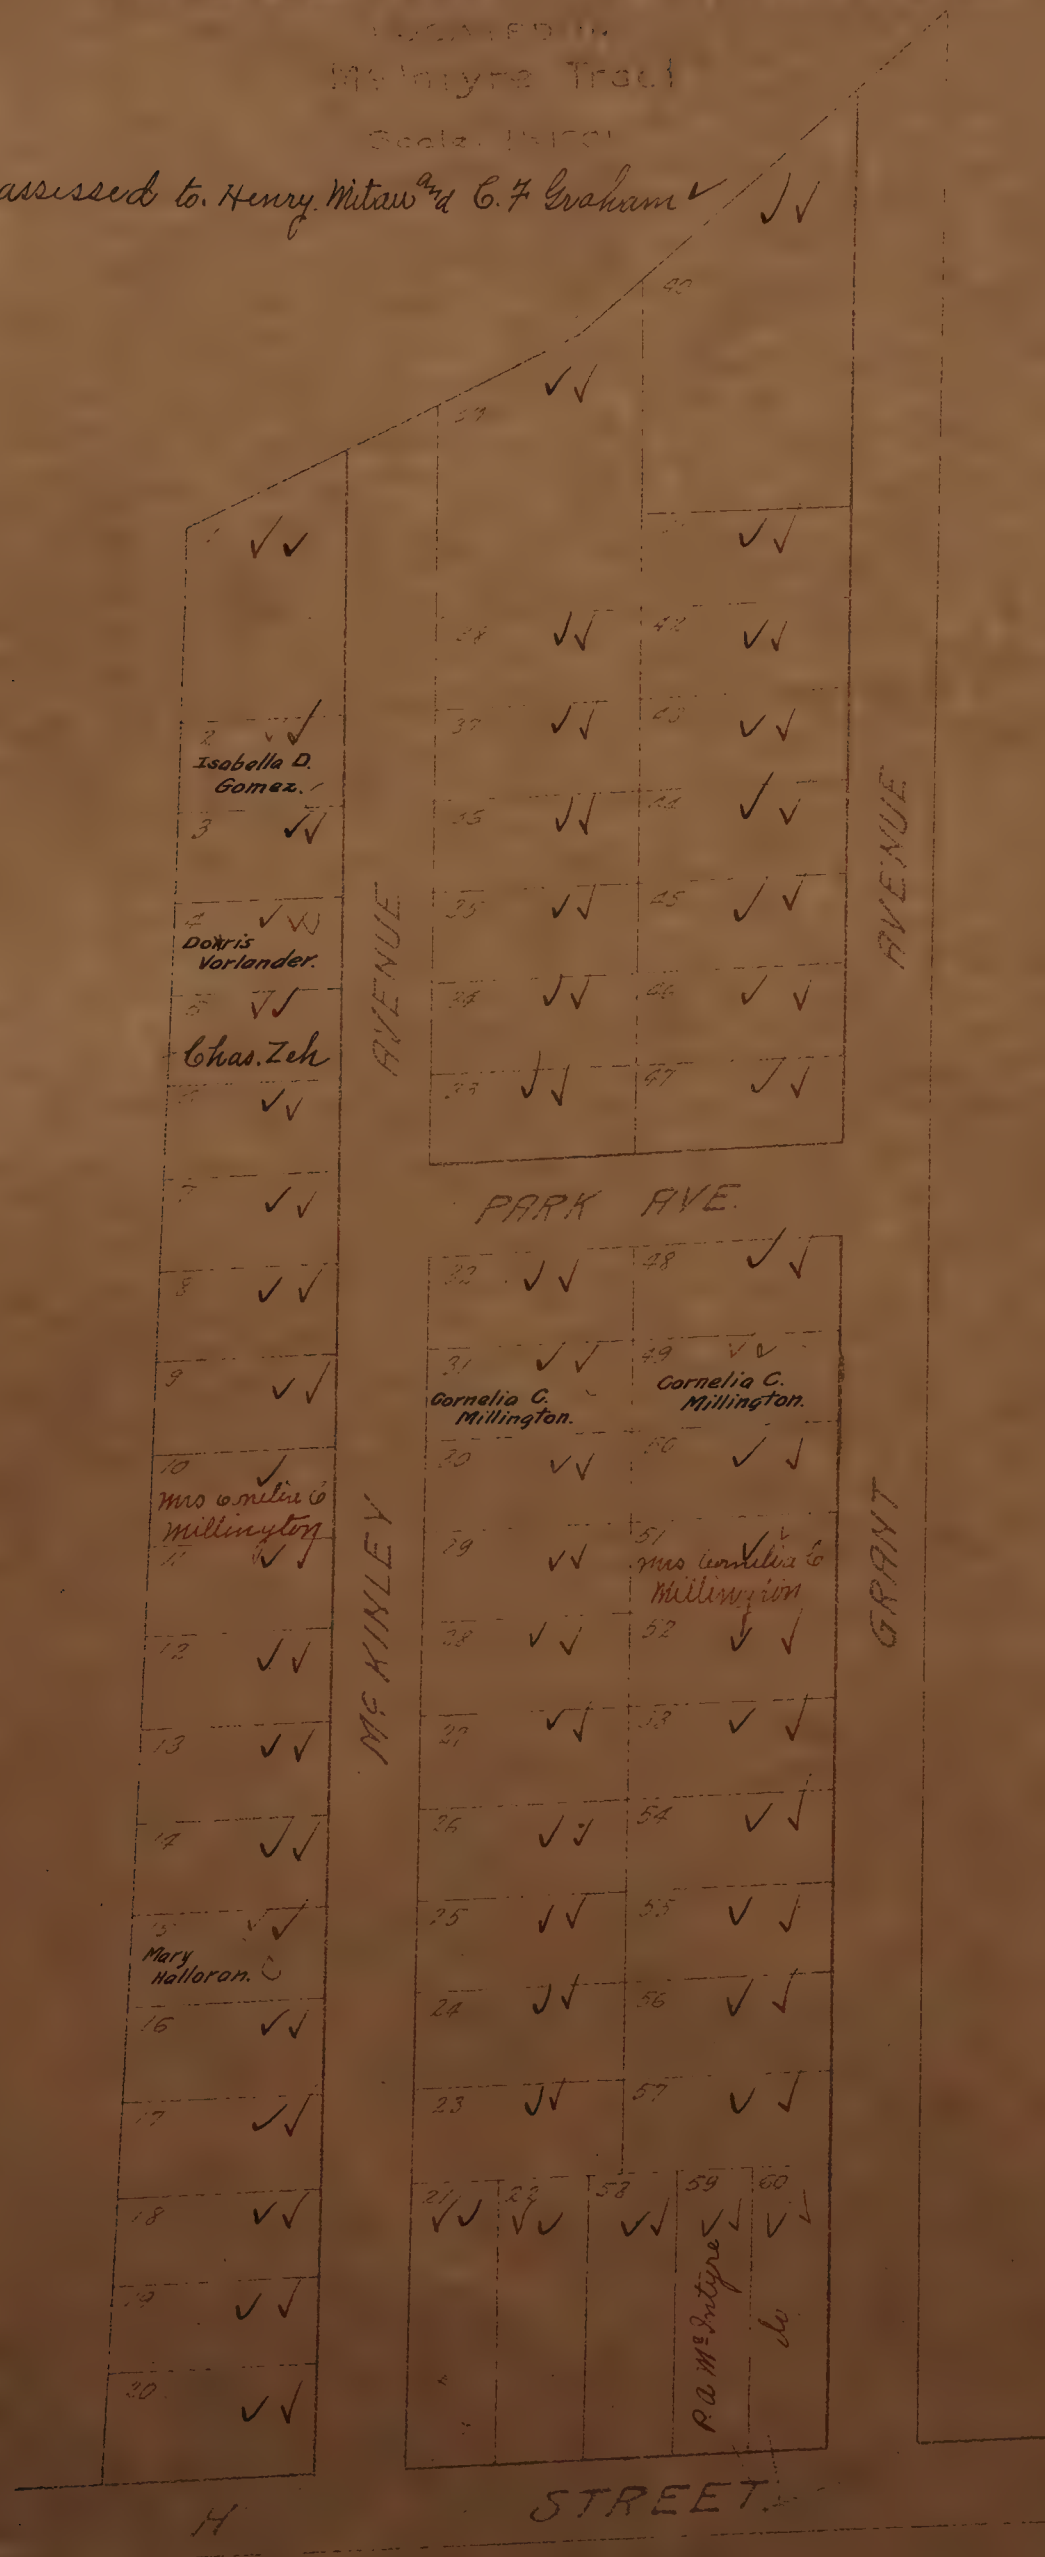 LOCATED IN
McIntyre Tract
Scale. 1"=100'
assessed to. Henry. Mitau and C. F Graham
40
39
1
38
42
2
37
43
Isabella D.
Gomez.
3
44
4
35
45
Dorris
Vorlander.
5
34
46
Chas. Zeh
33
47
AVENUE
AVENUE
7
PARK AVE.
32
48
8
31
49
9
Cornelia C.
Millington.
Cornelia C.
Millington.
10
30
50
Mrs Cornelia C
Millington
11
29
51
Mrs Cornelia C
Millington
McKINLEY
GRANT
12
28
52
13
27
53
14
26
54
15
25
55
Mary
Halloran.
16
24
56
17
23
57
18
21
22
58
59
60
P. A McIntyre
do
19
20
H STREET.